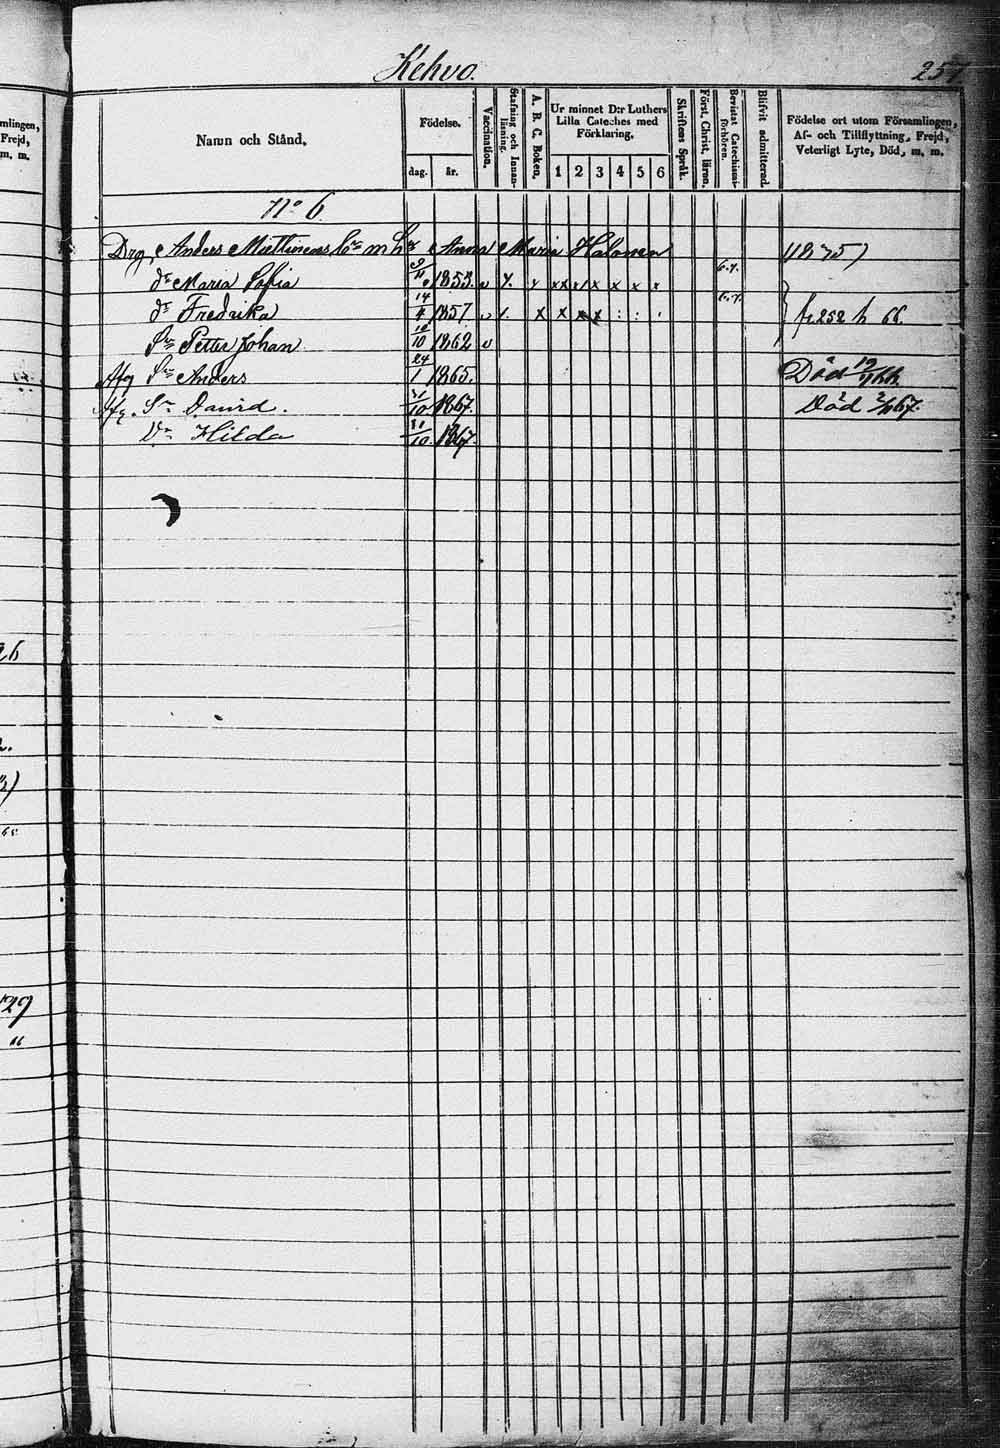 Kehvo. 257
mlingen,
Frejd,
m. m.
Namn och Stånd.
Födelse.
dag. år.
Vaccination.
Stafning och Innan-
läsning.
A. B. C. Boken.
Ur minnet D:r Luthers
Lilla Cateches med
Förklaring.
1 2 3 4 5 6
Skriftens Språk.
Först. Christ. läron.
Bevistat Catechismi-
förhören.
Blifvit admitterad.
Födelse ort utom Församlingen,
Af- och Tillflyttning, Frejd,
Veterligt Lyte, Död, m. m.
No 6.
Drg. Anders Mattinens Bn m h Anna Maria Halonen
dr Maria Sofia 1853. v x x x x x x x
dr Fredrika 14/4 1857 v x x x x : : fr 252 h 66.
Sn Petter Johan 10/10 1862 v
Afg Sn Anders 24/1 1865. Död 19/1 66.
Afg. Sn David. 31/10 1867. Död 67.
Dr Hilda 31/10 1867.
26
2.
3)
65
29
"